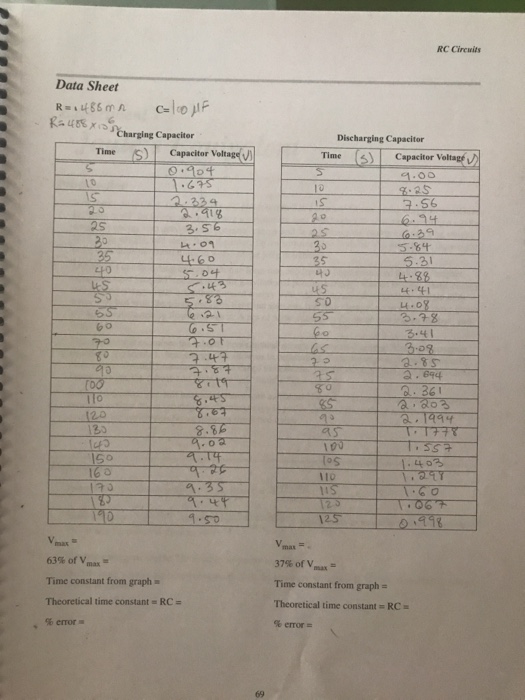 RC Circuits
Data Sheet
R = .486 mΩ C= 100 μF
R= 486 x 10
Charging Capacitor
Time (S) Capacitor Voltage (V)
5 0.904
10 1.675
15 2.334
20 2.918
25 3.56
30 4.09
35 4.60
40 5.04
45 5.43
50 5.83
55 6.21
60 6.51
70 7.01
80 7.47
90 7.87
100 8.19
110 8.45
120 8.67
130 8.86
140 9.02
150 9.14
160 9.26
170 9.35
180 9.44
190 9.50
Vmax =
63% of Vmax =
Time constant from graph =
Theoretical time constant = RC =
% error =
Discharging Capacitor
Time (S) Capacitor Voltage (V)
5 9.00
10 8.25
15 7.56
20 6.94
25 6.39
30 5.84
35 5.31
40 4.88
45 4.41
50 4.08
55 3.78
60 3.41
65 3.08
70 2.85
75 2.644
80 2.361
85 2.203
90 2.1994
95 1.1778
100 1.557
105 1.403
110 1.297
115 1.60
120 1.067
125 0.998
Vmax =
37% of Vmax =
Time constant from graph =
Theoretical time constant = RC =
% error =
69